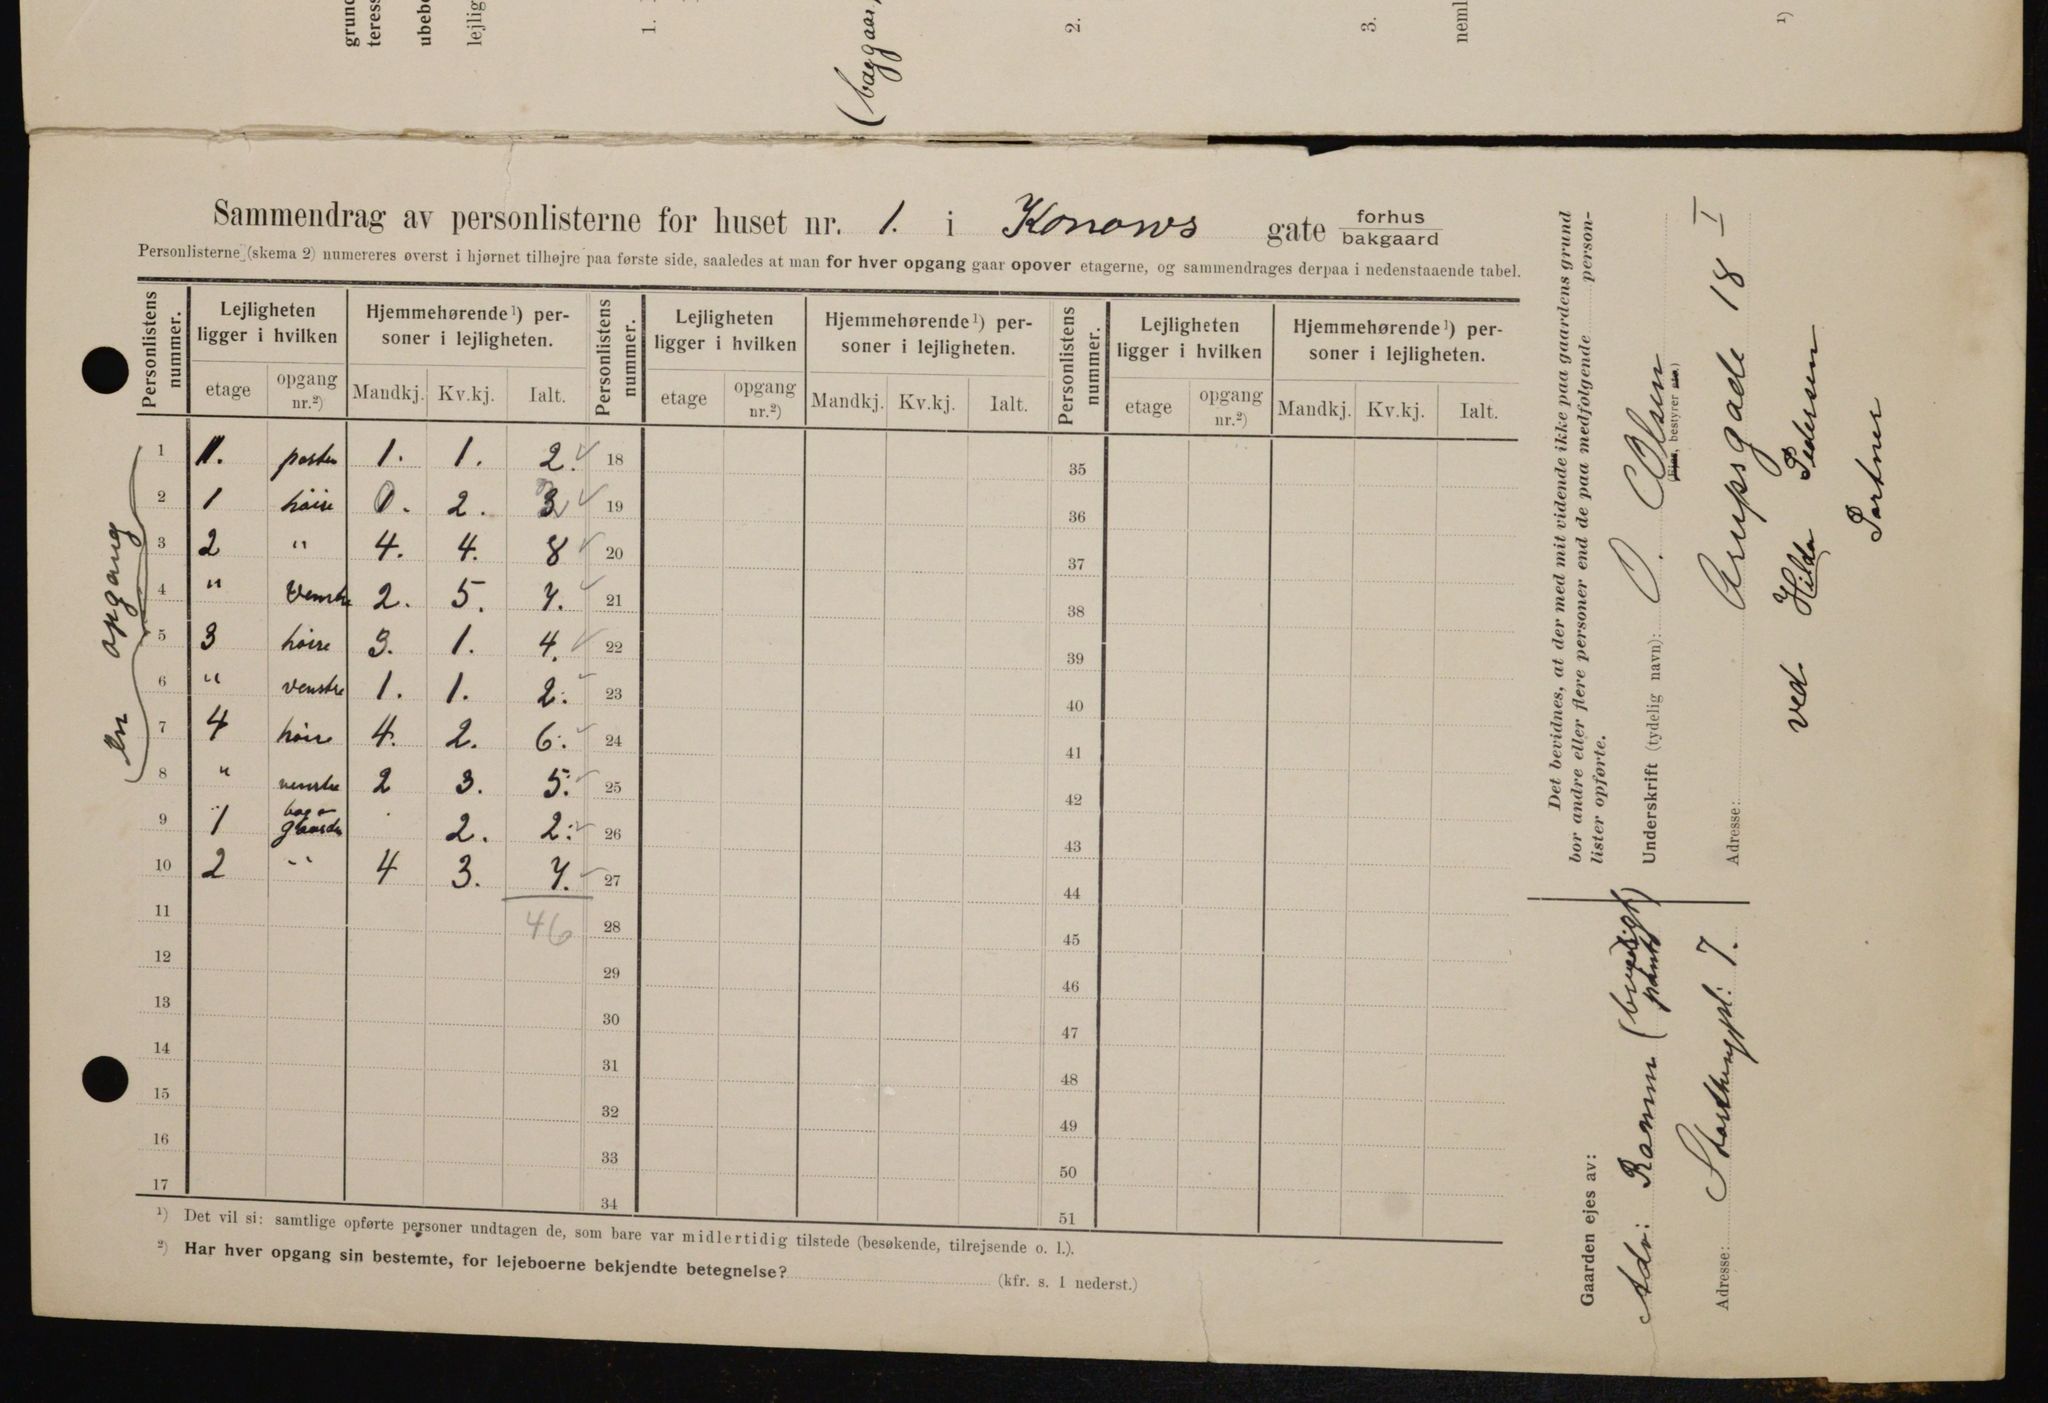 grund
teress
ubebo
lejlig
1.
(baggaar
2.
3.
neml
1)
Sammendrag av personlisterne for huset nr. 1. i Konows gate forhus
bakgaard
Personlisterne (skema 2) numereres øverst i hjørnet tilhøjre paa første side, saaledes at man for hver opgang gaar opover etagerne, og sammendrages derpaa i nedenstaaende tabel.
Personlistens nummer. Lejligheten ligger i hvilken Hjemmehørende1) personer i lejligheten. Personlistens nummer. Lejligheten ligger i hvilken Hjemmehørende1) personer i lejligheten. Personlistens nummer. Lejligheten ligger i hvilken Hjemmehørende1) personer i lejligheten.
etage opgang nr.2) Mandkj. Kv.kj. Ialt. etage opgang nr.2) Mandkj. Kv.kj. Ialt. etage opgang nr.2) Mandkj. Kv.kj. Ialt.
en opgang
1 1. porten 1. 1. 2. 18 35
2 1 høire 0. 2. 2 19 36
3 2 " 4. 4. 8 20 37
4 " Venstre 2. 5. 7. 21 38
5 3 høire 3. 1. 4. 22 39
6 " venstre 1. 1. 2. 23 40
7 4 høire 4. 2. 6. 24 41
8 " venstre 2 3. 5. 25 42
9 1 baggaarden 2. 2. 26 43
10 2 " 4 3. 7. 27 44
46
11 28 45
12 29 46
13 30 47
14 31 48
15 32 49
16 33 50
17 34 51
1) Det vil si: samtlige opførte personer undtagen de, som bare var midlertidig tilstede (besøkende, tilrejsende o. l.).
2) Har hver opgang sin bestemte, for lejeboerne bekjendte betegnelse? (kfr. s. 1 nederst.)
Det bevidnes, at der med mit vidende ikke paa gaardens grund
bor andre eller flere personer end de paa medfølgende personlister opførte.
Underskrift (tydelig navn): O. Olsen
(Ejer, bestyrer etc.)
Adresse: Arupsgade 18 I
ved Hilda Pedersen
Portner
Gaarden ejes av:
Adv: Ramm (brugelig pant)
Adresse: Storthingspl: 7.